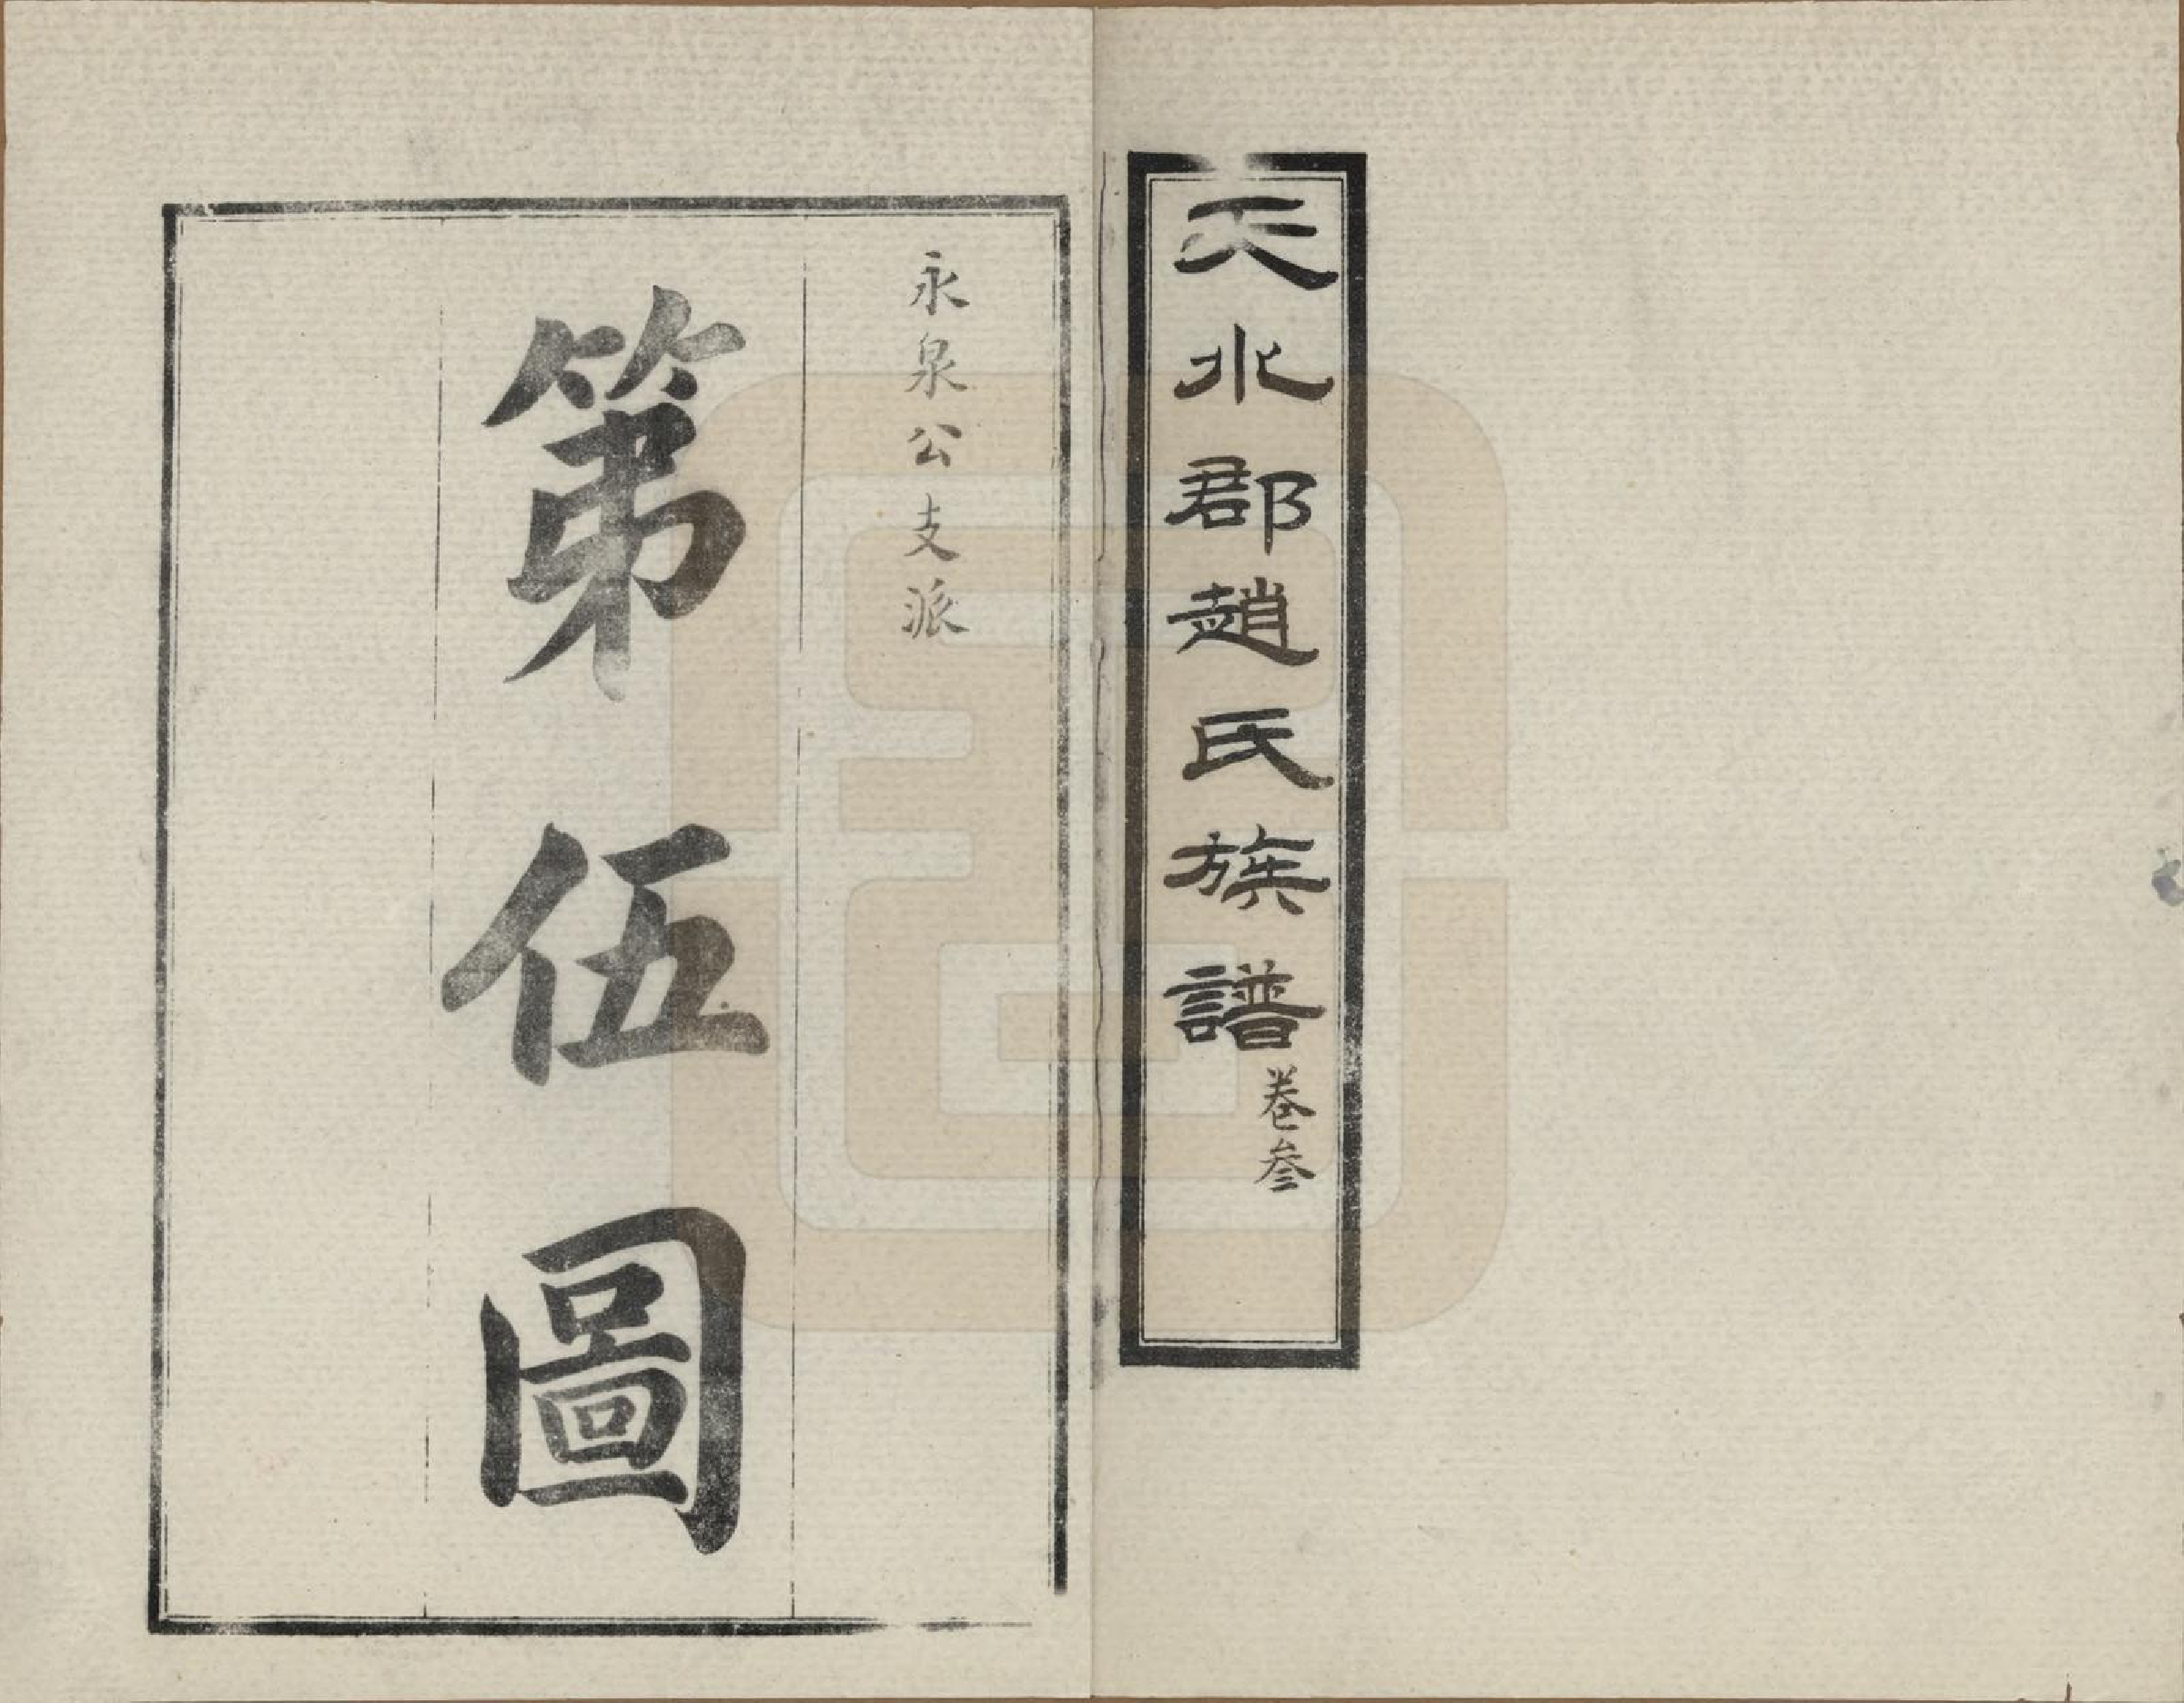 天水郡趙氏族譜
卷叄
永泉公支派
第伍圖